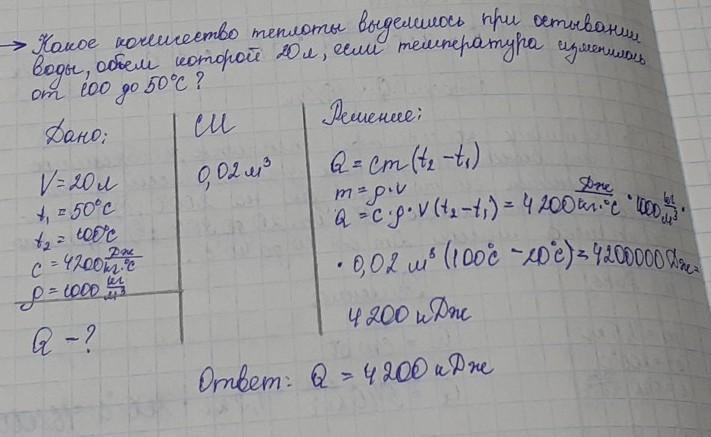 → Какое количество теплоты выделилось при остывании
воды, объем которой 20 л, если температура изменилась
от 100 до 50°С?
Дано:
V = 20 л
t₁ = 50°С
t₂ = 100°С
c = 4200 Дж/кг·°С
ρ = 1000 кг/м³
Q - ?
СИ
0,02 м³
Решение:
Q = cm (t₂ - t₁)
m = ρ·v
Q = c·ρ·V (t₂ - t₁) = 4200 Дж/кг·°С · 1000 кг/м³ ·
· 0,02 м³ (100°С - 20°С) = 4200000 Дж =
4200 кДж
Ответ: Q = 4200 кДж